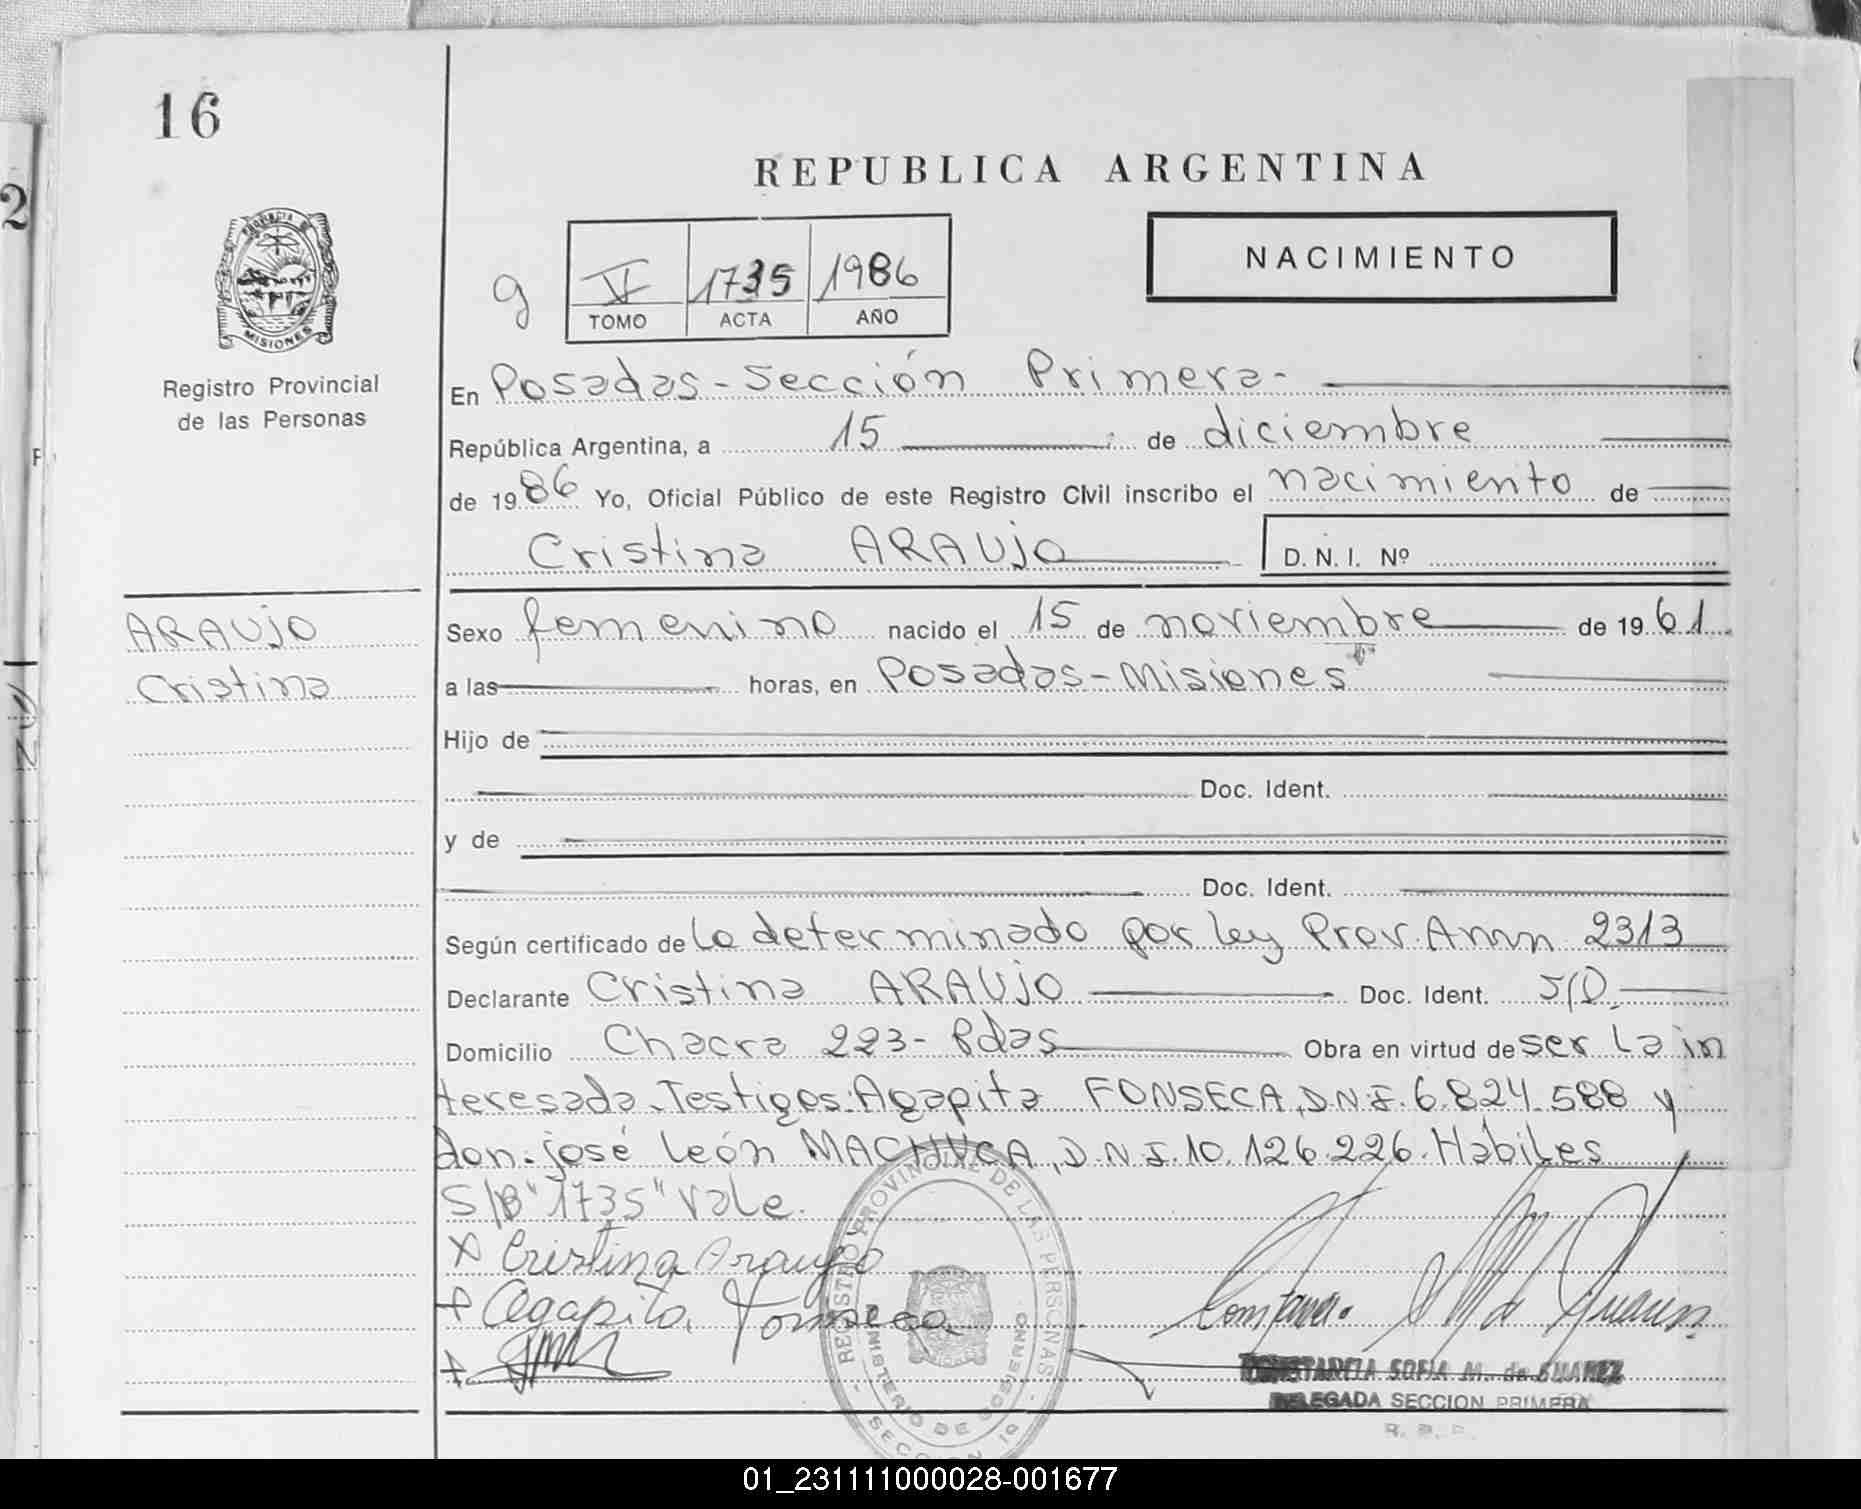 16
REPUBLICA ARGENTINA
NACIMIENTO
g V 1735 1986
TOMO ACTA AÑO
PROVINCIA DE
MISIONES
Registro Provincial
de las Personas
2
En Posadas-Sección Primera-
República Argentina, a 15 de diciembre
de 1986 Yo, Oficial Público de este Registro Civil inscribo el nacimiento de
Cristina ARAUJO D. N. I. Nº
ARAUJO
Cristina
Sexo femenino nacido el 15 de noviembre de 1961
a las horas, en Posadas-Misiones
Hijo de
Doc. Ident.
y de
Doc. Ident.
Según certificado de lo determinado por ley Prov. Amn 2313
Declarante Cristina ARAUJO Doc. Ident. S/D.
Domicilio Chacra 223- Pdas Obra en virtud de ser la in
teresada. Testigos: Agapita FONSECA, D.N.I. 6.824.588 y
don. josé León MACHUCA, D.N.I. 10.126.226. Habiles
S/B "1735" Vale.
x Cristina Araujo
+ Agapita Fonseca
+
REGISTRO PROVINCIAL DE LAS PERSONAS
MINISTERIO DE GOBIERNO
SECCION 1ª
CONSTANCIA SOFIA M. de SUAREZ
DELEGADA SECCION PRIMERA
R. P. P.
01_231111000028-001677